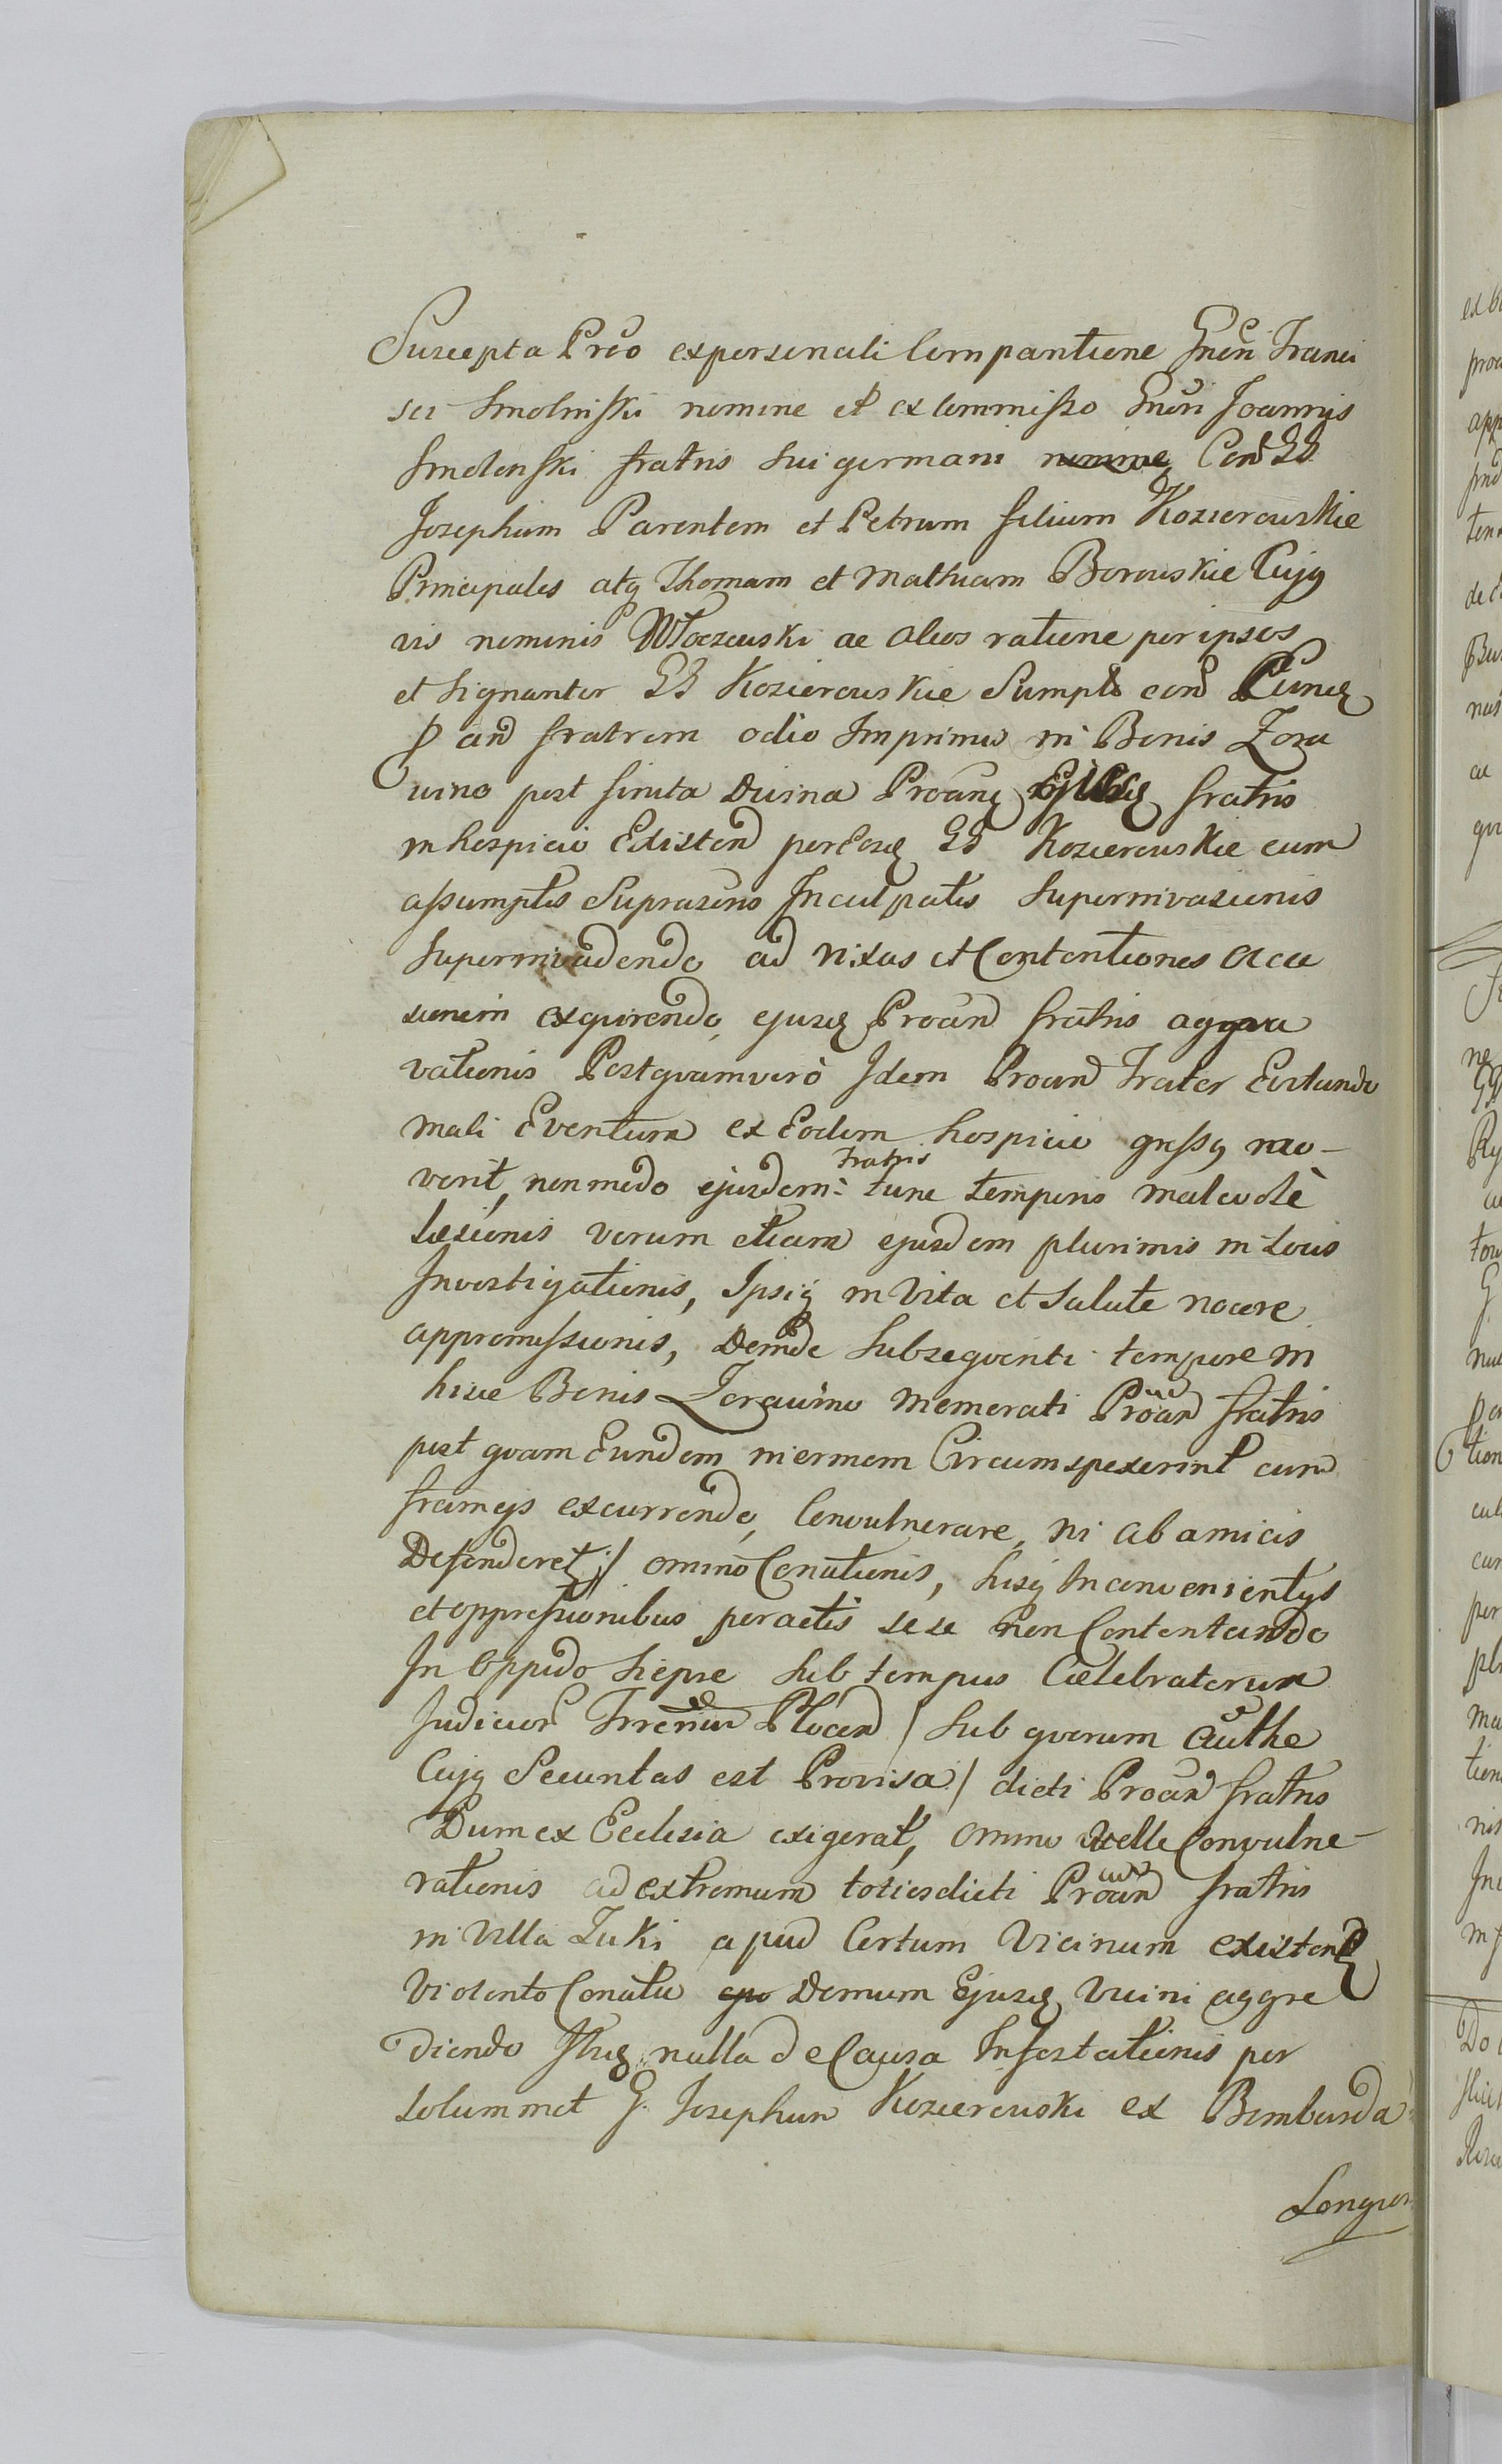 Suscepta Prõ ex personali Comparitione Gnõsi Franci
sci Smolinſki nomine et ex Commiſso Gnõsi Joannis
Smolenſki fratris sui germani nomine Conƌ GG
Josephum Parentem et Petrum filium Kozierowskie
Principales atq Thomam et Mathiam Borowskie Cujq
vis nominis Włoczewski ac alios ratione per ipsos
et signanter GG Kozierowskie Sumpt conƌ
fratrem odio Imprimis in Bonis Zora
wino post finita Divina fratris
in hospicio Existenƌ per Eosƌ GG Kozierowskie cum
aſsumptis Inculpatis Superinvasionis
Superinvadendo ad rixas et Contentiones Occa
sionem exquirendo, ejusƌ Proanƌ fratris aggra
vationis Postquamverò Idem Proanƌ Frater Evitando
mali Eventum ex Eodem hospicio greſsq mo-
verit, non modo ejusdem Fratris tunc temporis malevolè
læsionis verum etiam ejusdem plurimis in Locis
Investigationis, Ipsiq in Vita et Salute nocere
appromiſsionis, Deinde Subsequenti tempore in
hisce Bonis Zorawino memorati Proanƌ fratris
post quam Eundem inermem Circumspexerint cum
frameis excurrendo, Convulnerare, ni ab amicis
Defenderetƌ / omino Conationis, hisq Inconvenientijs
et oppreſsionibus peractis sese non Contentando
In Oppido Siepre sub tempus Cælebratorum
Judicior Płocen / sub quorum Authe
Cujq Securitas est Provisa / dicti Proanƌ fratris
Dum ex Ecclesia exigerat, omino velle Convulne-
rationis ad extremum totiesdicti Proanƌ fratris
in Villa Łuki apud Certum Vicinum existenƌ
Violento Conatu Domum Ejusƌ Vicini aggre
diendo nulla de Causa Infestationis per
solummet G. Josephum Kozierowski ex Bombarda
Longior